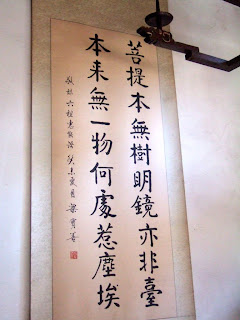 菩提本無樹明鏡亦非臺
本来無一物何處惹塵埃
六祖惠能 癸未夏月